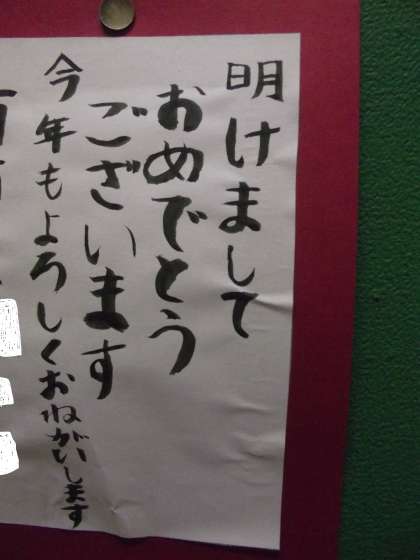 明けまして
おめでとう
ございます
今年もよろしくおねがいします